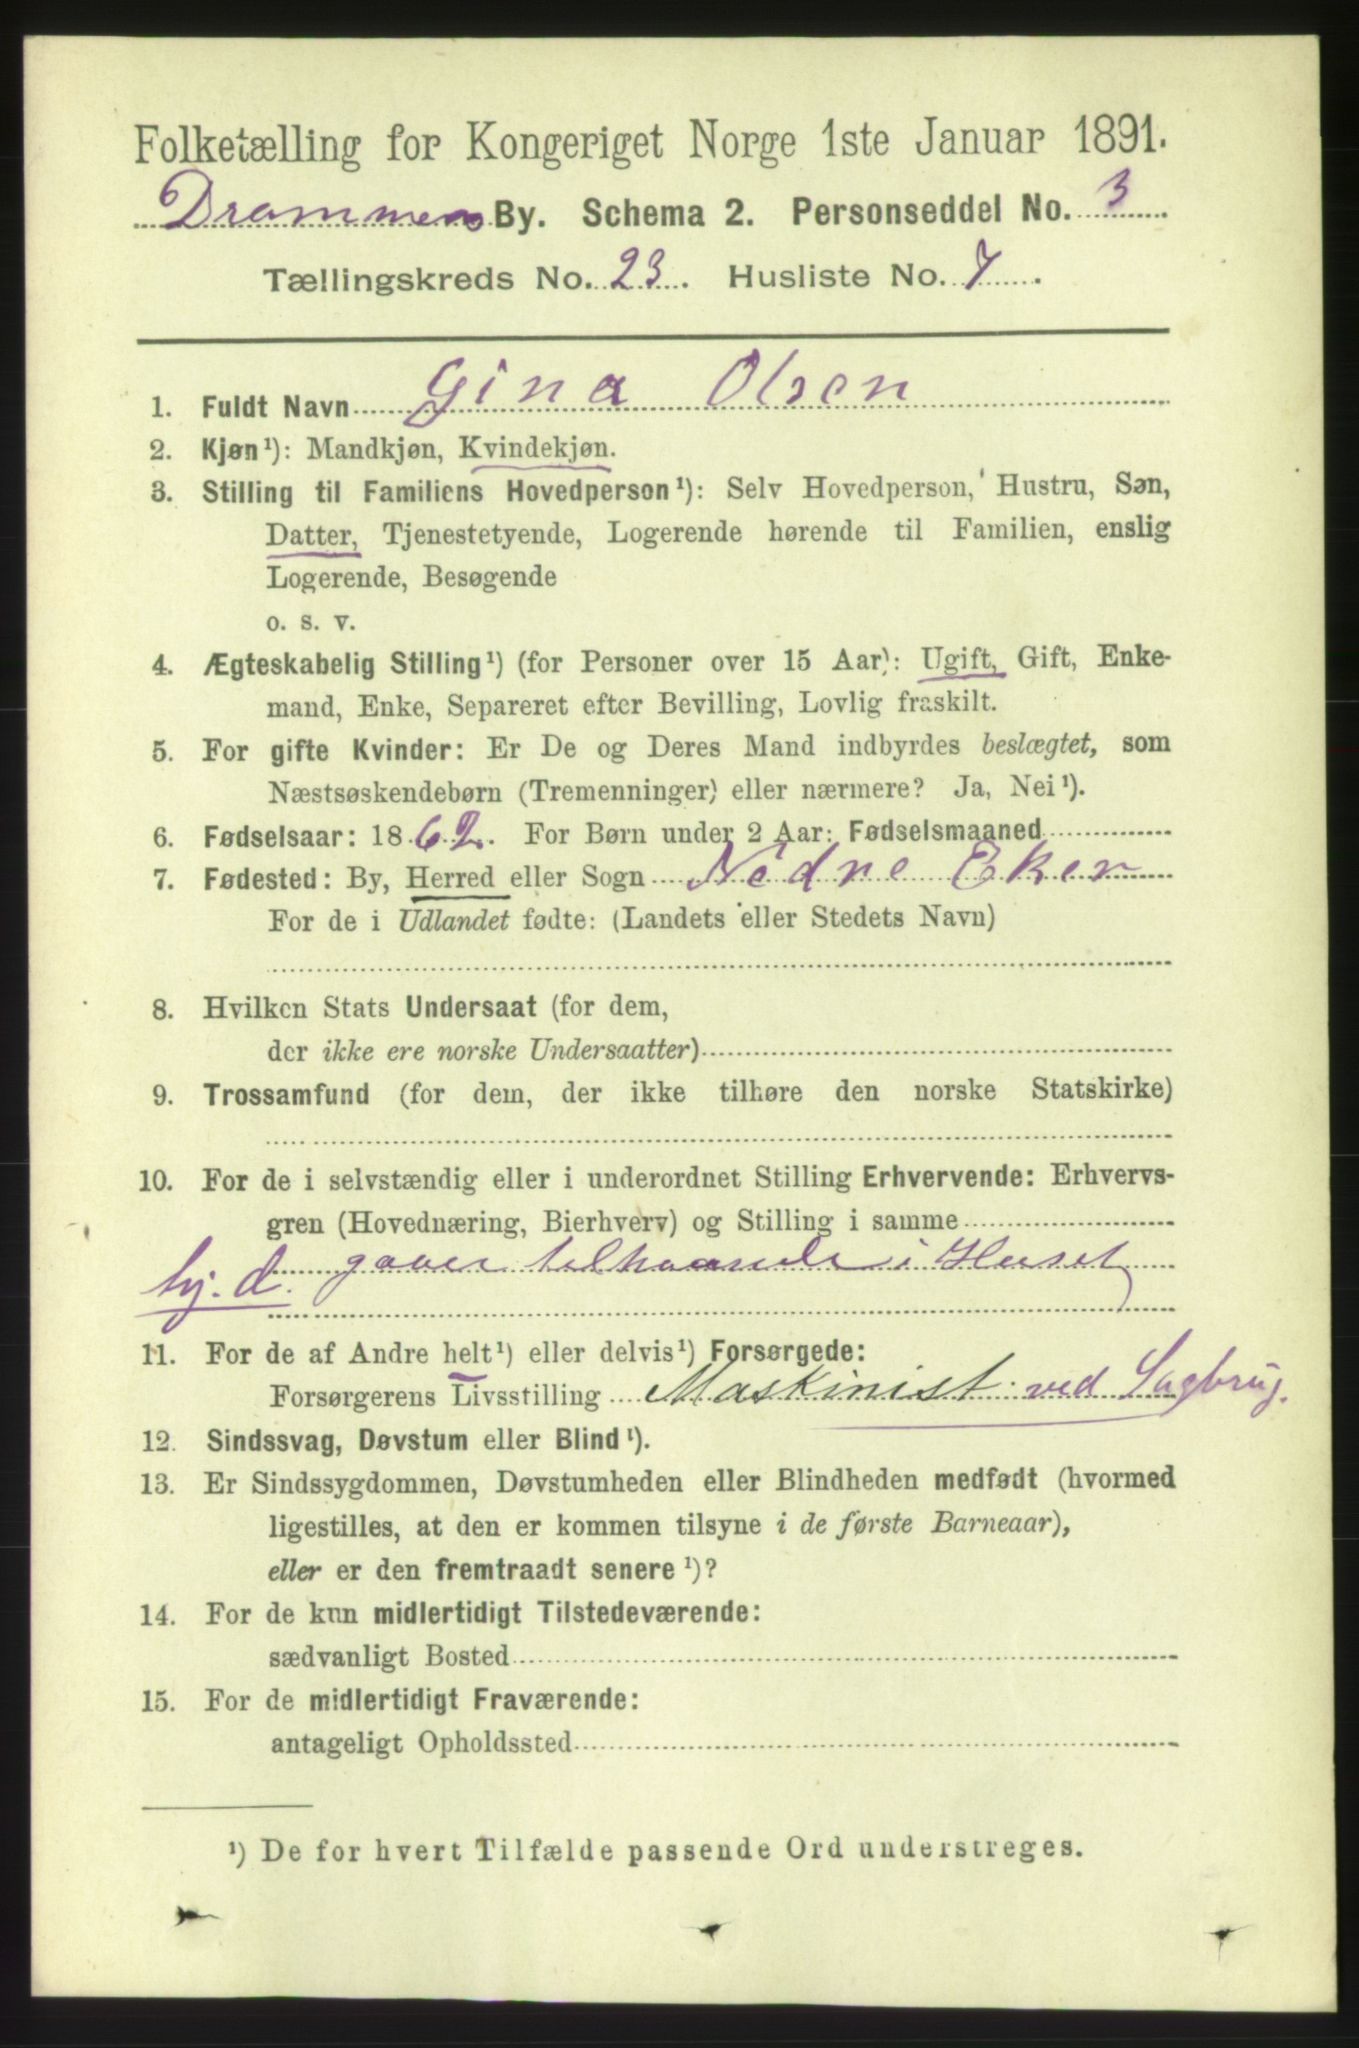 Folketælling for Kongeriget Norge 1ste Januar 1891.
Drammen By. Schema 2. Personseddel No. 3
Tællingskreds No. 23. Husliste No. 7.
1. Fuldt Navn Gina Olsen
2. Kjøn¹): Mandkjøn, Kvindekjøn.
3. Stilling til Familiens Hovedperson¹): Selv Hovedperson, Hustru, Søn,
Datter, Tjenestetyende, Logerende hørende til Familien, enslig
Logerende, Besøgende
o. s. v.
4. Ægteskabelig Stilling¹) (for Personer over 15 Aar): Ugift, Gift, Enke-
mand, Enke, Separeret efter Bevilling, Lovlig fraskilt.
5. For gifte Kvinder: Er De og Deres Mand indbyrdes beslægtet, som
Næstsøskendebørn (Tremenninger) eller nærmere? Ja, Nei¹).
6. Fødselsaar: 1862. For Børn under 2 Aar: Fødselsmaaned
7. Fødested: By, Herred eller Sogn Nedre Eker
For de i Udlandet fødte: (Landets eller Stedets Navn)
8. Hvilken Stats Undersaat (for dem,
der ikke ere norske Undersaatter)
9. Trossamfund (for dem, der ikke tilhøre den norske Statskirke)
10. For de i selvstændig eller i underordnet Stilling Erhvervende: Erhvervs-
gren (Hovednæring, Bierhverv) og Stilling i samme
hj. d. gaaer tilhaande i Huset
11. For de af Andre helt¹) eller delvis¹) Forsørgede:
Forsørgerens Livsstilling Maskinist ved Sagbrug.
12. Sindssvag, Døvstum eller Blind¹).
13. Er Sindssygdommen, Døvstumheden eller Blindheden medfødt (hvormed
ligestilles, at den er kommen tilsyne i de første Barneaar),
eller er den fremtraadt senere¹)?
14. For de kun midlertidigt Tilstedeværende:
sædvanligt Bosted
15. For de midlertidigt Fraværende:
antageligt Opholdssted
¹) De for hvert Tilfælde passende Ord understreges.